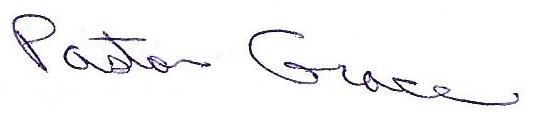 Pastor Grace